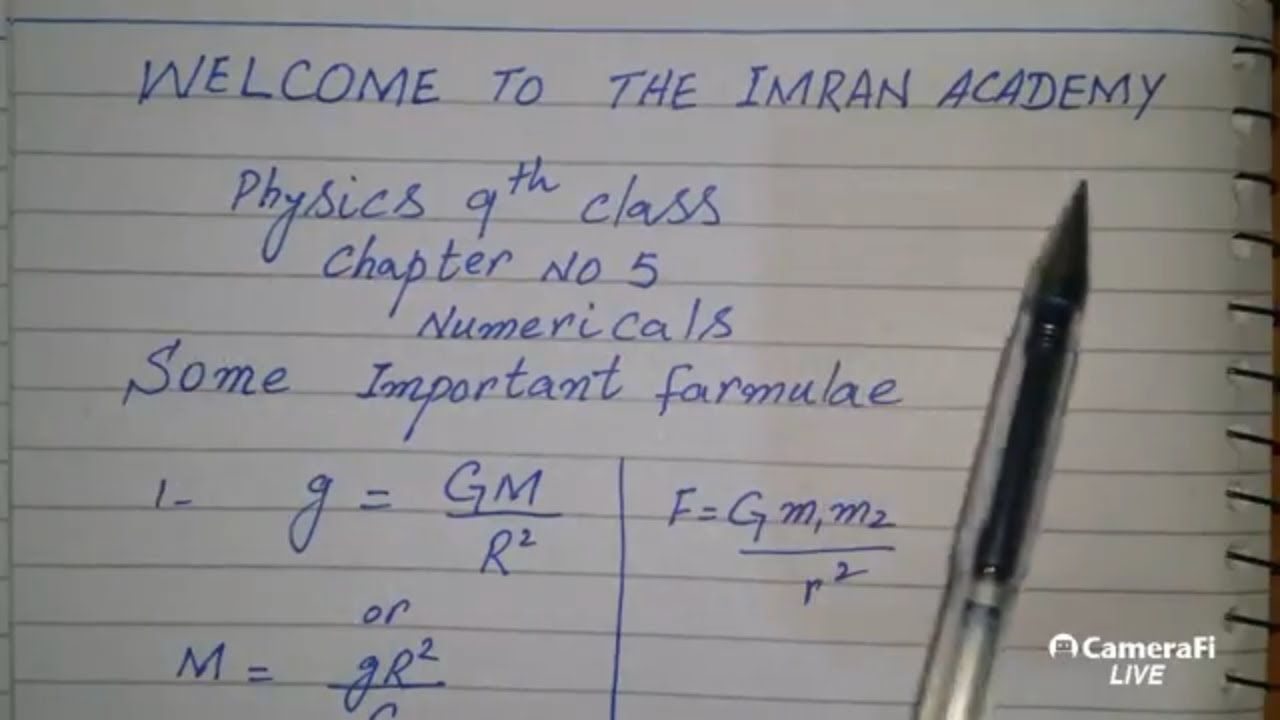 WELCOME TO THE IMRAN ACADEMY
Physics 9th class
Chapter No 5
Numericals
Some Important farmulae
1- g = GM / R²
F = G m₁m₂ / r²
or
M = gR² / G
CameraFi
LIVE